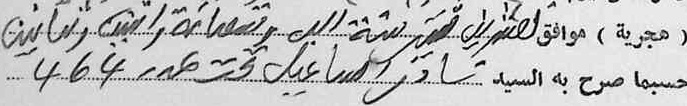 ( هجرية ) موافق لعشرين شتنبر سنة الف وتسعمائة واثنين وثمانين
حسبما صرح به السيد اسماعيل تحت عدد 464